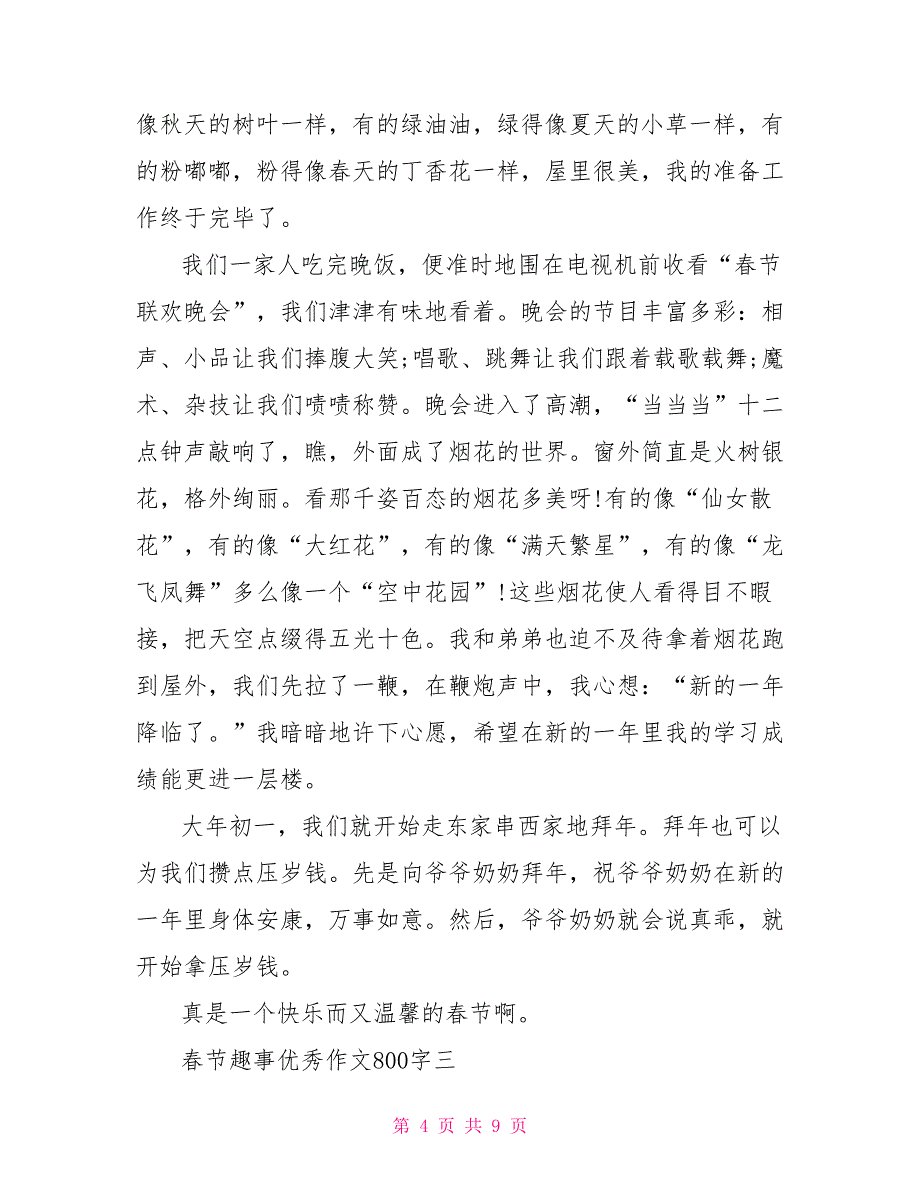 像秋天的树叶一样，有的绿油油，绿得像夏天的小草一样，有
的粉嘟嘟，粉得像春天的丁香花一样，屋里很美，我的准备工
作终于完毕了。
我们一家人吃完晚饭，便准时地围在电视机前收看“春节
联欢晚会”，我们津津有味地看着。晚会的节目丰富多彩：相
声、小品让我们捧腹大笑;唱歌、跳舞让我们跟着载歌载舞;魔
术、杂技让我们啧啧称赞。晚会进入了高潮，“当当当”十二
点钟声敲响了，瞧，外面成了烟花的世界。窗外简直是火树银
花，格外绚丽。看那千姿百态的烟花多美呀!有的像“仙女散
花”，有的像“大红花”，有的像“满天繁星”，有的像“龙
飞凤舞”多么像一个“空中花园”!这些烟花使人看得目不暇
接，把天空点缀得五光十色。我和弟弟也迫不及待拿着烟花跑
到屋外，我们先拉了一鞭，在鞭炮声中，我心想：“新的一年
降临了。”我暗暗地许下心愿，希望在新的一年里我的学习成
绩能更进一层楼。
大年初一，我们就开始走东家串西家地拜年。拜年也可以
为我们攒点压岁钱。先是向爷爷奶奶拜年，祝爷爷奶奶在新的
一年里身体安康，万事如意。然后，爷爷奶奶就会说真乖，就
开始拿压岁钱。
真是一个快乐而又温馨的春节啊。
春节趣事优秀作文800字三
第 4 页 共 9 页